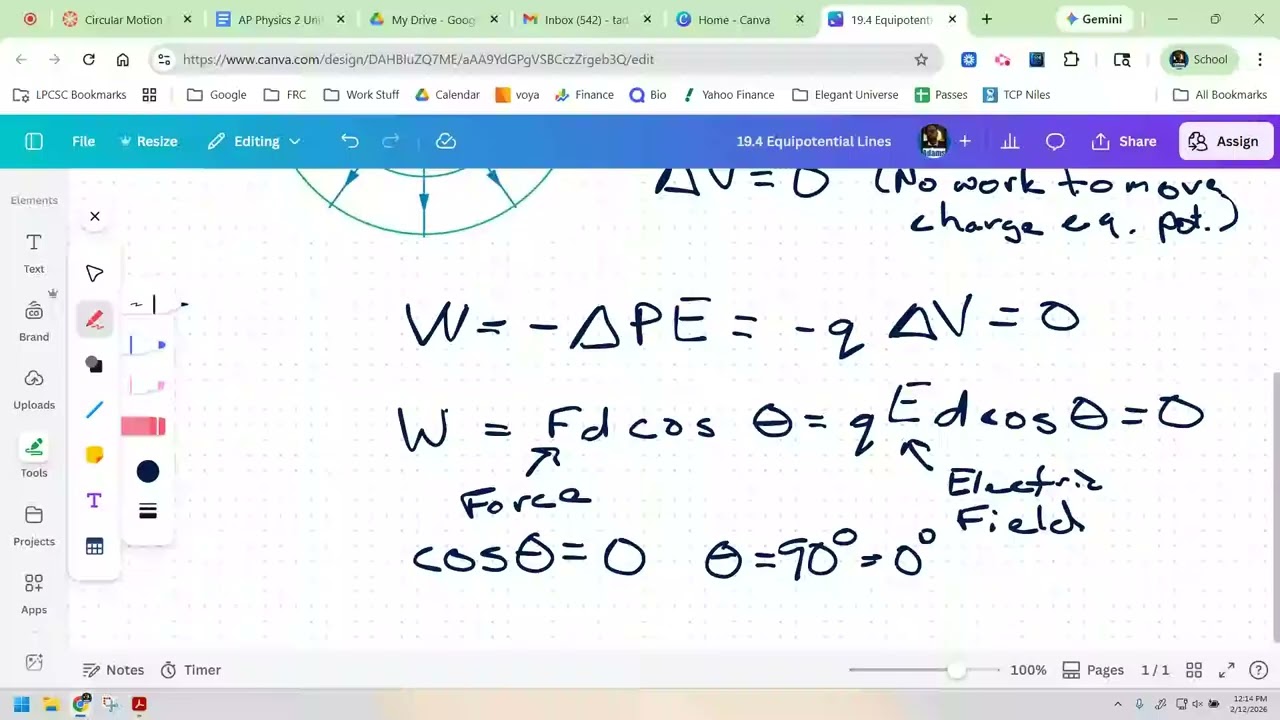 Circular Motion
AP Physics 2 Uni
My Drive - Goog
Inbox (542) - tad
Home - Canva
19.4 Equipotent
Gemini
https://www.canva.com/design/DAHBIuZQ7ME/eAA9YdGPgYSBCczZrgeb3Q/edit
School
LPCSC Bookmarks
Google
FRC
Work Stuff
Calendar
voya
Finance
Bio
Yahoo Finance
Elegant Universe
Passes
TCP Niles
All Bookmarks
File
Resize
Editing
19.4 Equipotential Lines
Share
Assign
Elements
Text
Brand
Uploads
Tools
Projects
Apps
ΔV = 0 (No work to move
charge eq. pot.)
W = - ΔPE = - q ΔV = 0
W = Fd cos θ = q E d cos θ = 0
Force
Electric
Field
cos θ = 0 θ = 90° = 0°
Notes
Timer
100%
Pages
1 / 1
12:14 PM
2/12/2026